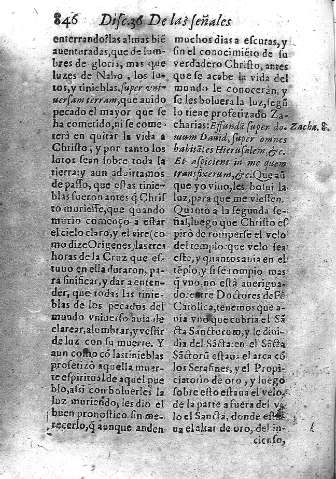 846 Disc.36 De las señales
enterrandose las almas biē
auenturadas, que de lum-
bres de gloria, mas que
luzes de Nabo, los lu-
tos, y tinieblas, super vni-
uersam terram, que auido
pecado el mayor que se
ha cometido, ni se come-
terá en quitar la vida à
Christo, y por tanto los
lutos sean sobre toda la
tierra: y aun aduirtamos
de passo, que estas tinie-
blas fueron antes q̃ Christ
to muriesse, que quando
murio començo a estar
el cielo claro, y el vire (co
mo dize Origenes, las tres
horas de la Cruz que es-
tuuo en ella duraron, pa-
ra sinificar, y dar a enten-
der, que todas las tinie-
blas de los pecados del
mundo vniuerso auia de
clarear, alumbrar, y vestir
de luz con su muerte. Y
aun como cō las tinieblas
profetizò aquella muer-
te espiritual de aquel pue
blo, assi con boluerles la
luz muriendo, les dio el
buen pronostico sin me-
recerlo, q̃ aunque anden
muchos dias a escuras, y
sin el conocimiēto de su
verdadero Christo, antes
que se acabe la vida del
mundo le conoceràn, y
se les boluera la luz, segũ
lo tiene profetizado Za-
charias: Effundā super do-
mum Dauid, & super omnes
habitātes Hierusalem, &c.
Et aspicient in me quem
transfixerunt, &c. Que aũ
que yo viuo, les bolui la
luz, para que me viessen.
Quanto a la segunda se-
ñal, luego que Christo es-
pirò se romperse el velo
del templo: que velo sea
este, y quantos auia en el
tēplo, y si se rompio mas
q̃ vno no està auerigua-
do: entre Doctores de Fè
Catolica, tenemos que a-
uia vno que cubria el Sā-
cta Sanctorum, y le diui-
dia del Sācta: en el Sācta
Sāctorũ estaua el arca cō
los Serafines, y el Propi-
ciatorio de oro, y luego
sobre esto estaua el velo.
de la parte a fuera del ve-
lo el Sancta, donde esta-
ua el altar de oro, del in-
cienso,
Zacha. 8.